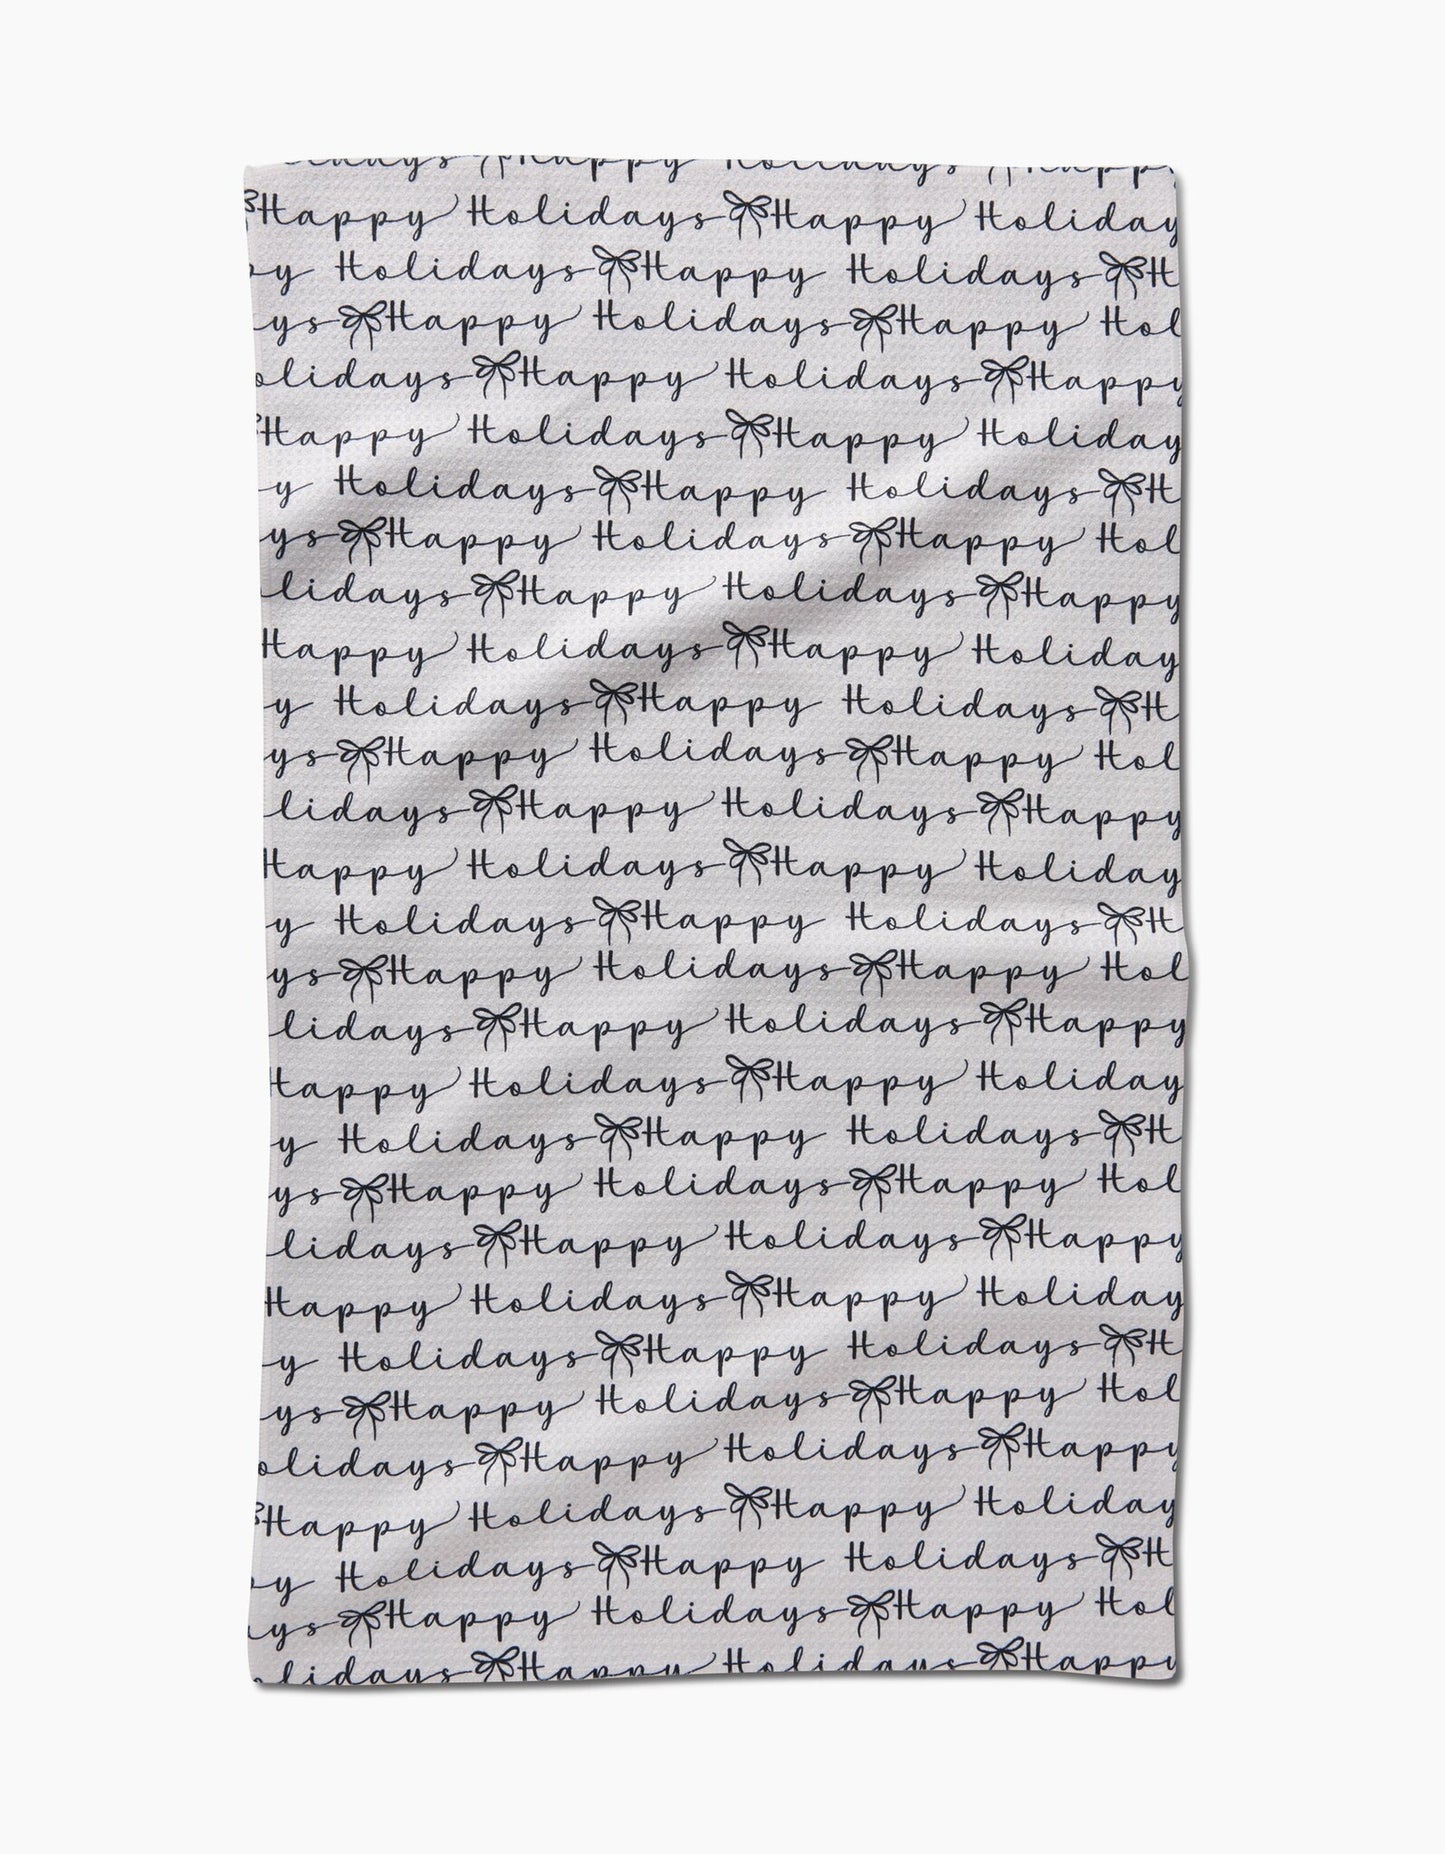 lidays Happy Holidays Happy
Happy Holidays Happy Holiday
py Holidays Happy Holidays H
ys Happy Holidays Happy Hol
olidays Happy Holidays Happy
Happy Holidays Happy Holiday
y Holidays Happy Holidays H
ys Happy Holidays Happy Hol
lidays Happy Holidays Happy
Happy Holidays Happy Holiday
y Holidays Happy Holidays H
ys Happy Holidays Happy Hol
lidays Happy Holidays Happy
Happy Holidays Happy Holiday
y Holidays Happy Holidays H
ys Happy Holidays Happy Hol
lidays Happy Holidays Happy
Happy Holidays Happy Holiday
y Holidays Happy Holidays H
ys Happy Holidays Happy Hol
lidays Happy Holidays Happy
Happy Holidays Happy Holiday
y Holidays Happy Holidays H
ys Happy Holidays Happy Hol
olidays Happy Holidays Happy
Happy Holidays Happy Holiday
py Holidays Happy Holidays H
ys Happy Holidays Happy Hol
olidays Happy Holidays Happy